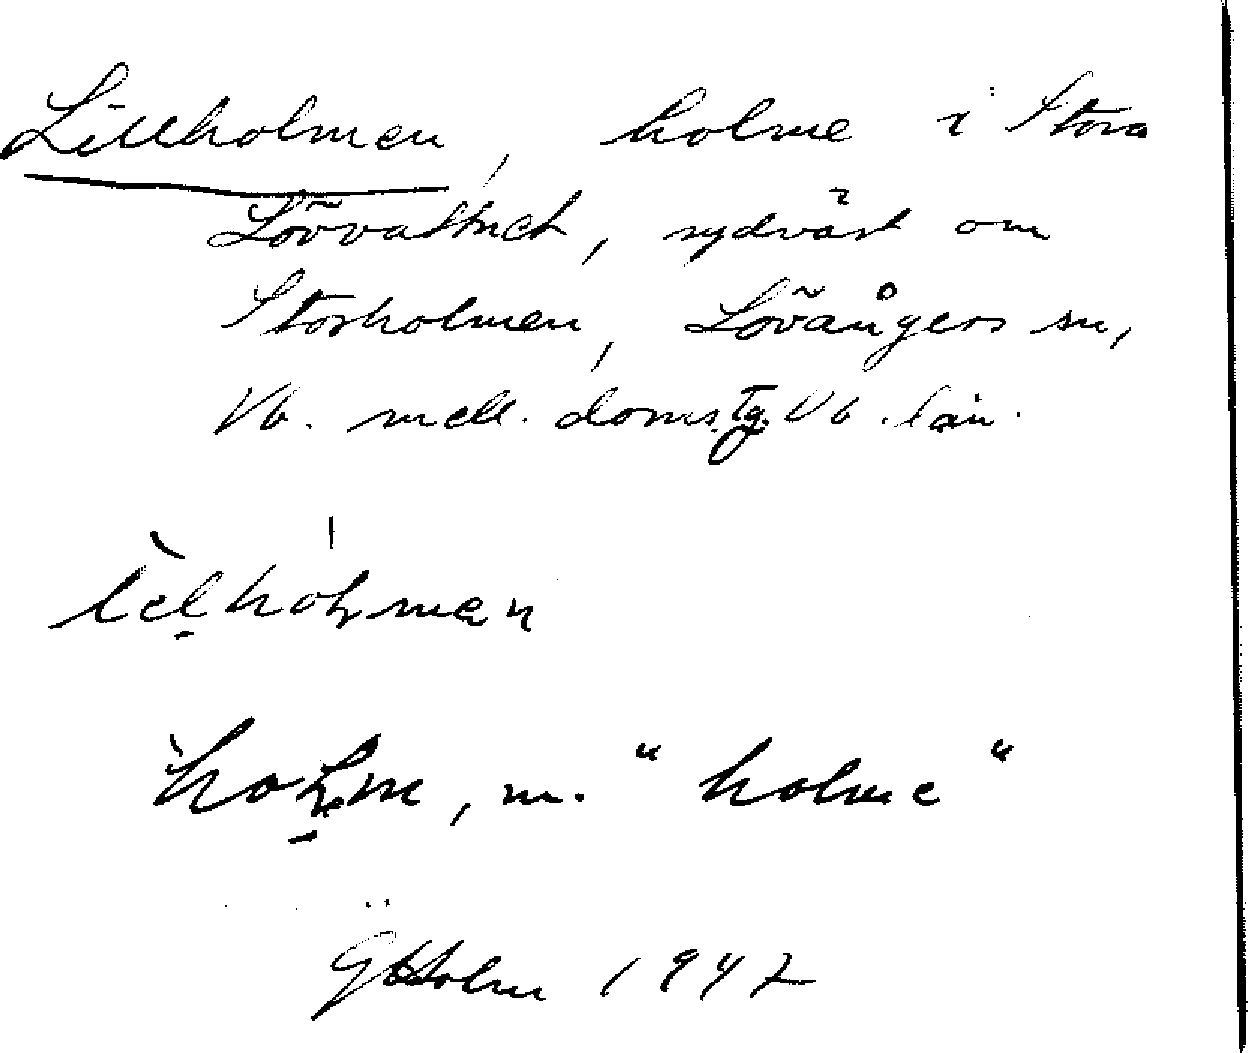 Lillholmen, holme i Stora
Lövvattnet, sydväst om
Storholmen, Lövångers sn,
Vb. mell. doms. tg. Vb. län.
holme, m. "holme"
G Holm 1947